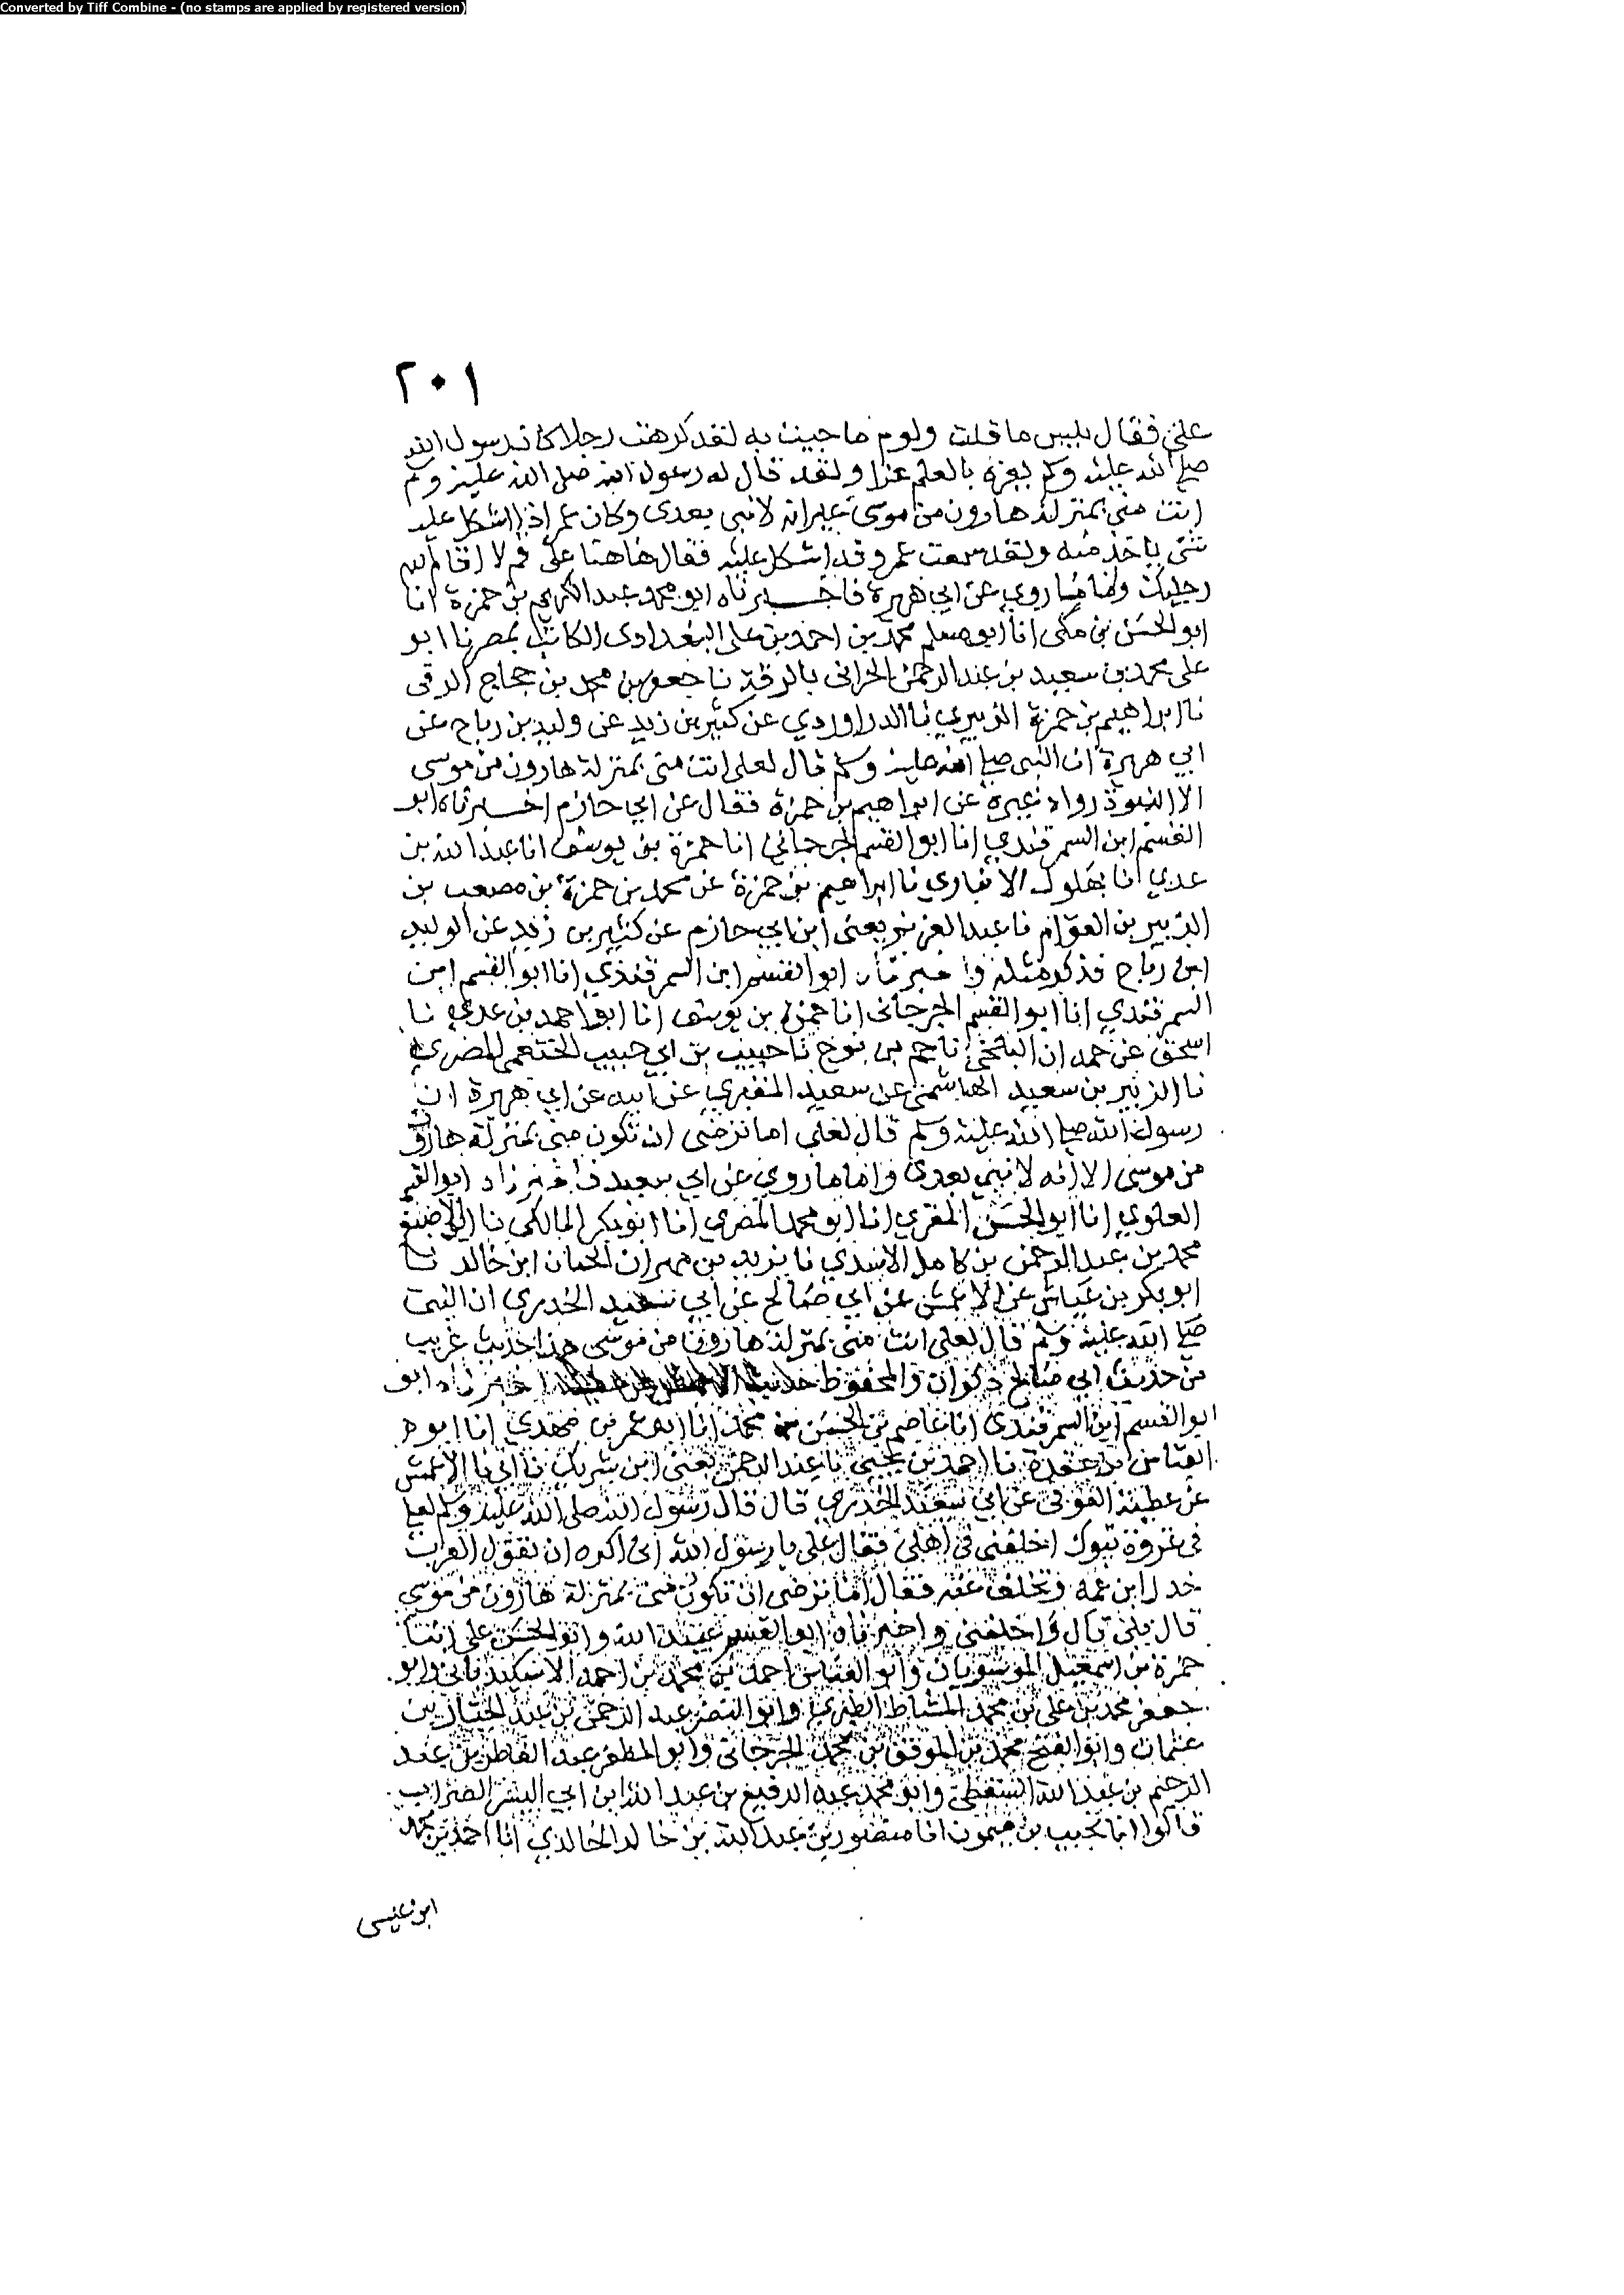 Converted by Tiff Combine - (no stamps are applied by registered version)
٢٠١
علي فقال بليس ما قلت ولوم ما جيت به لقد كرهت رجلا كان رسول الله
صلى الله عليه وسلم يغره بالعلم غزا ولقد قال له رسول الله صلى الله عليه وسلم
انت مني بمنزلة هارون من موسى غير انه لا نبي بعدي وكان عمر اذا اشكل عليه
شي ياخذ منه ولقد سمعت عمر وقد اشكل عليه فقال هاهنا علي قم لا اقام الله
رجليك واما ما روي عن ابي هريرة فاخبرناه ابو محمد عبد الكريم بن حمزة انا
ابو الحسن بن مكي انا ابو مسلم محمد بن احمد بن علي البغدادي الكاتب بمصر نا ابو
علي محمد بن سعيد بن عبد الرحمن الحراني بالرقة نا جعفر بن محمد بن حجاج الرقي
نا ابراهيم بن حمزة الزبيري نا الدراوردي عن كثير بن زيد عن وليد بن رباح عن
ابي هريرة ان النبي صلى الله عليه وسلم قال لعلي انت مني بمنزلة هارون من موسى
الا النبوة رواه غيره عن ابراهيم بن حمزة فقال عن ابي حازم اخبرناه ابو
القسم ابن السمرقندي انا ابو القسم الجرجاني انا حمزة بن يوسف انا عبد الله بن
عدي انا بهلول الانباري نا ابراهيم بن حمزة عن محمد بن حمزة بن مصعب بن
الزبير بن العوام نا عبد العزيز يعني ابن ابي حازم عن كثير بن زيد عن الوليد
ابن رباح فذكر مثله واخبرنا ابو القسم ابن السمرقندي انا ابو القسم ابن
السمرقندي انا ابو القسم الجرجاني انا حمزة بن يوسف انا ابو احمد بن عدي نا
اسحق عن حمدان البلخي نا حم بن نوح نا حبيب بن ابي حبيب الخثعمي المصري
نا الزبير بن سعيد الهاشمي عن سعيد المقبري عن ابيه عن ابي هريرة ان
رسول الله صلى الله عليه وسلم قال لعلي اما ترضى ان تكون مني بمنزلة هارون
من موسى الا انه لا نبي بعدي واما ما روي عن ابي سعيد فاخبرناه ابو القسم
العلوي انا ابو الحسن المقري انا ابو محمد المصري انا ابو بكر المالكي نا ابو الاصبغ
محمد بن عبد الرحمن بن كامل الاسدي نا يزيد بن مهران ابن خالد نا
ابو بكر بن عياش عن الاعمش عن ابي صالح عن ابي سعيد الخدري ان النبي
صلى الله عليه وسلم قال لعلي انت مني بمنزلة هارون من موسى هذا حديث غريب
من حديث ابي صالح ذكوان والمحفوظ حديث اخبرناه ابو
ابو القسم ابن السمرقندي انا عاصم بن الحسن بن محمد انا ابو عمر بن مهدي انا ابو
العباس ابن عقدة نا احمد بن يحيي نا عبد الرحمن يعني ابن شريك نا ابي نا الاعمش
عن عطية العوفي عن ابي سعيد الخدري قال قال رسول الله صلى الله عليه وسلم لعلي
في غزوة تبوك اخلفني في اهلي فقال علي يا رسول الله اني اكره ان يقول العرب
خذل ابن عمه وتخلف عنه فقال اما ترضى ان تكون مني بمنزلة هارون من موسى
قال بلى قال واخلفني واخبرناه ابو القسم عبيد الله وابو الحسن علي ابنا
حمزة بن اسمعيل الموسويان وابو العباس احمد بن محمد بن احمد وابو
جعفر محمد بن علي بن محمد المشاط الطبري وابو النضر عبد الرحمن بن عبد الجبار بن
عثمان وابو الفتح محمد بن الموفق بن محمد الجرجاني وابو المظفر عبد الفاطر بن عبد
الرحيم بن عبد الله السقطي وابو محمد عبد الرفيع بن عبد الله ابن ابي اليسر الصراب
قالوا انا نجيب بن ميمون انا منصور بن عبد الله بن خالد الخالدي انا احمد بن محمد
ابو عيسى